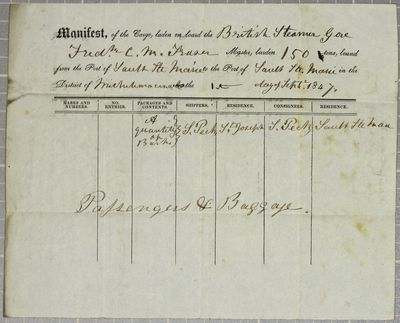 Manifest, of the Cargo, laden on board the British Steamer Gore
Fredk C. M. Fraser Master, burden 150 tons, bound
from the Port of Sault Ste Marie to the Port of Sault Ste Marie in the
District of Michilimackinac the 1st day of Septr. 1847.
MARKS AND NUMBERS. NO. ENTRIES. PACKAGES AND CONTENTS. SHIPPERS. RESIDENCE. CONSIGNEES. RESIDENCE.
A
quantity S. Peck St. Joseph S. Peck Sault Ste Marie
of
Passengers & Baggage.